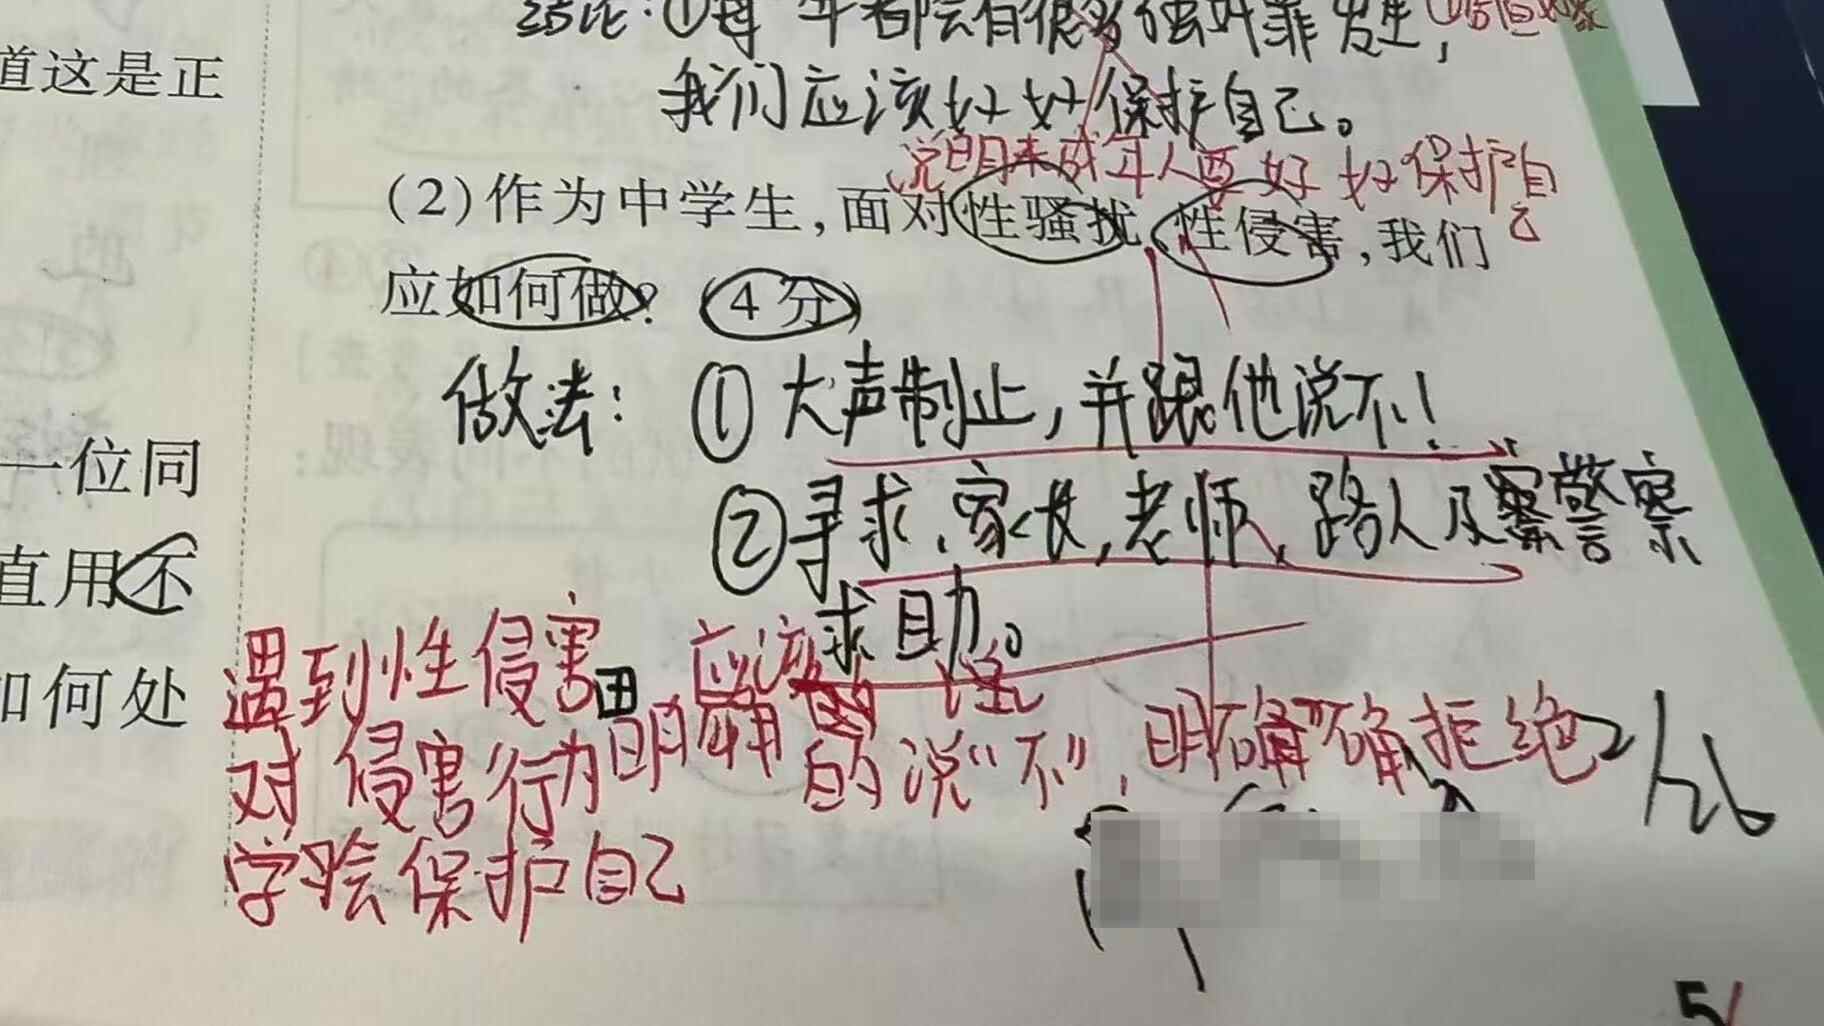 结论：①每年都会有很多强奸罪发生，
我们应该好好保护自己。
说明未成年人要好好保护自己
道这是正
(2)作为中学生，面对性骚扰、性侵害，我们
应如何做？(4分)
做法：①大声制止，并跟他说不！
一位同
②寻求、家长，老师、路人及警察
求助。
直用不
如何处
遇到性侵害 应该
对侵害行为明确的说“不”，明确拒绝
学会保护自己
5